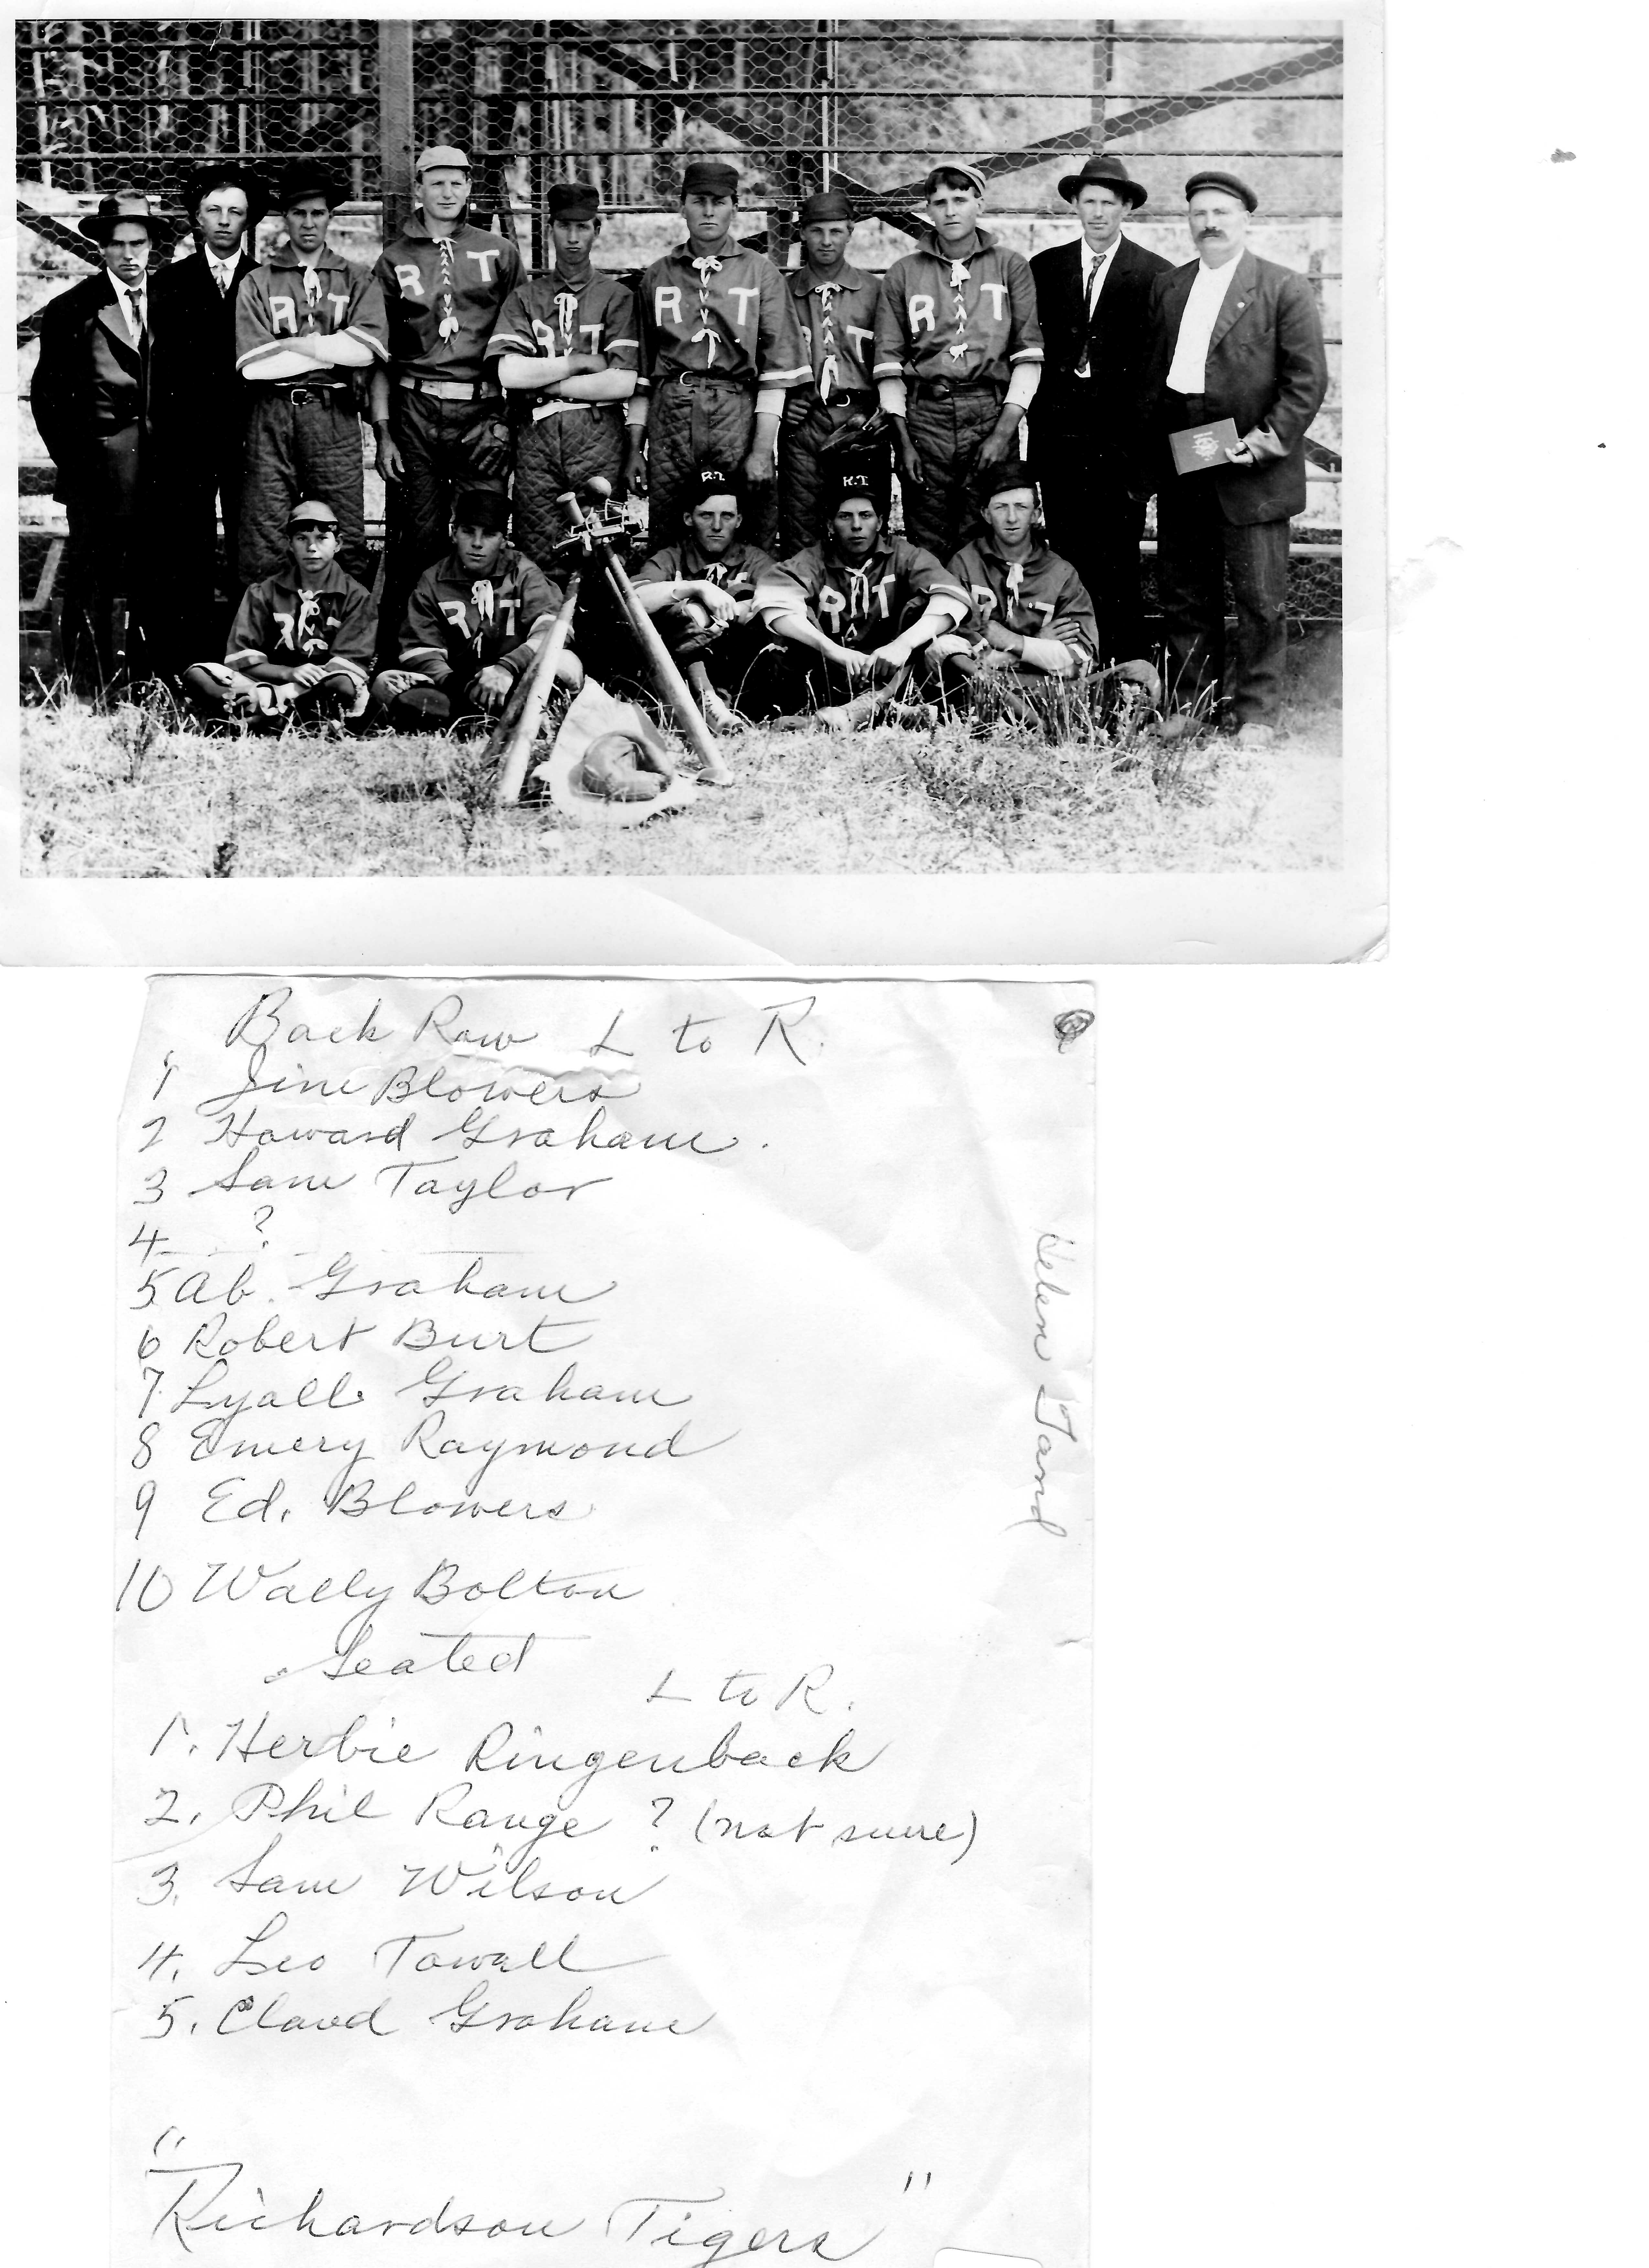 R T
R T
R T
R T
R T
R T
R.T.
R.T.
R T
R T
R T
R T
Back Row L to R.
1 Jim Blowers
2 Howard Graham.
3 Sam Taylor
4 ?
5 Ab. Graham
6 Robert Burt
7 Lyall Graham
8 Emery Raymond
9 Ed. Blowers
10 Wally Bolton
Seated
L to R.
1. Herbie Ringenback
2. Phil Range ? (not sure)
3. Sam Wilson
4. Leo Towall
5. Claud Graham
"Richardson Tigers"
Helen